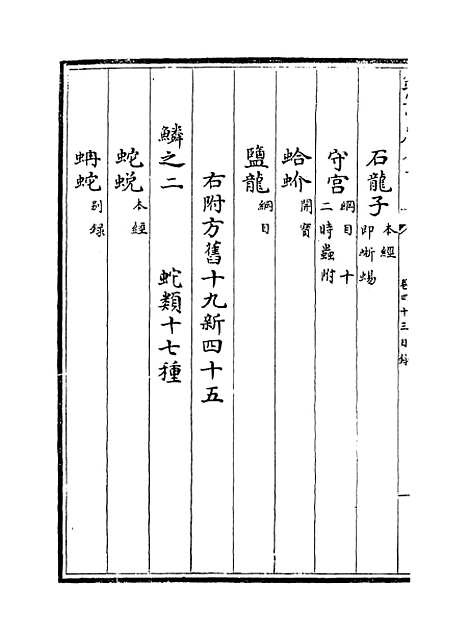 卷四十三目錄
石龍子 本經 即蜥蜴
守宫 綱目 十二時蟲附
蛤蚧 開寶
鹽龍 綱目
右附方舊十九新四十五
鱗之二 蛇類十七種
蛇蛻 本經
蚺蛇 别録